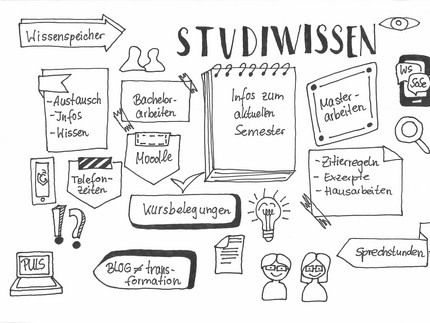 Wissenspeicher
STUDIWISSEN
-Austausch
-Infos
-Wissen
Bachelor-
arbeiten
Infos zum
aktuellen
Semester
Master-
arbeiten
WS
SoSe
Moodle
Telefon-
zeiten
- Zitierregeln
- Exzerpte
- Hausarbeiten
Kursbelegungen
!?
Sprechstunden
PULS
BLOG ≠ trans-
formation